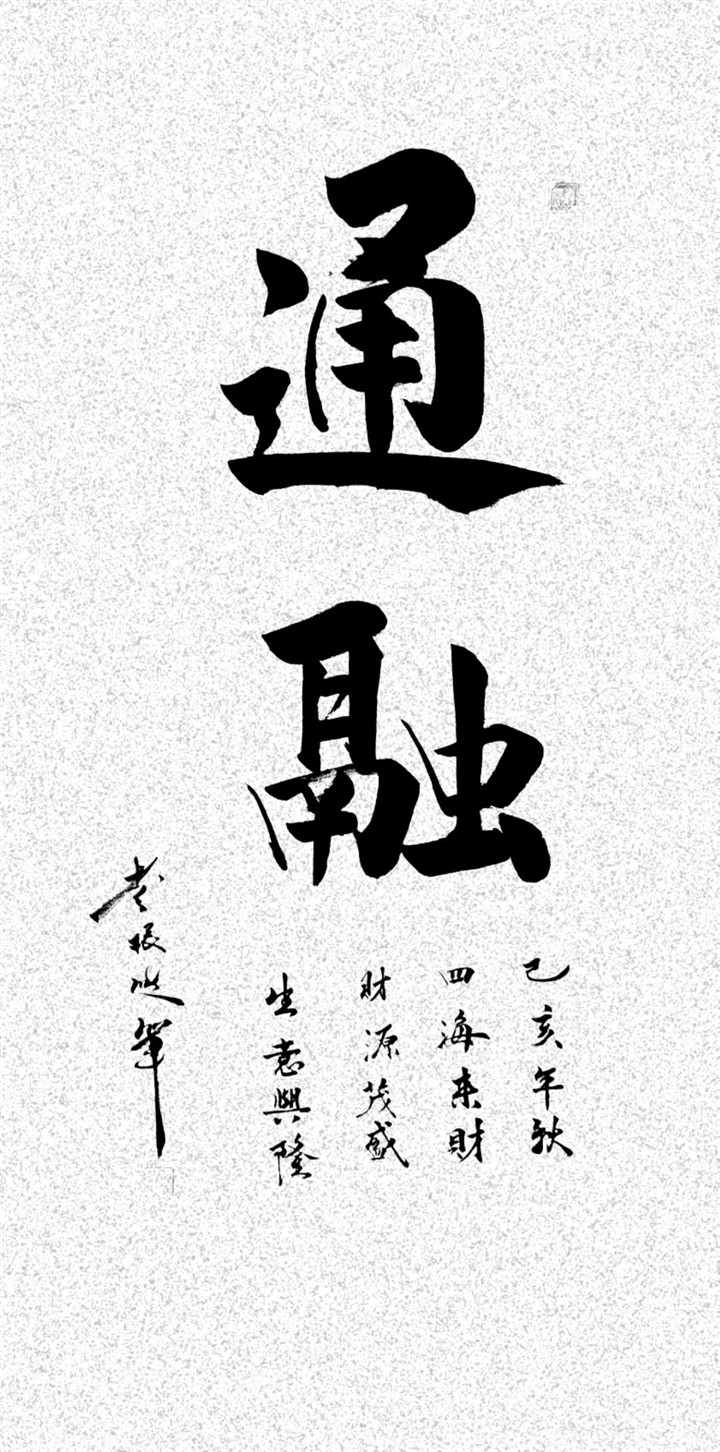 通融
己亥年秋
四海来財
財源茂盛
生意興隆
李振
筆